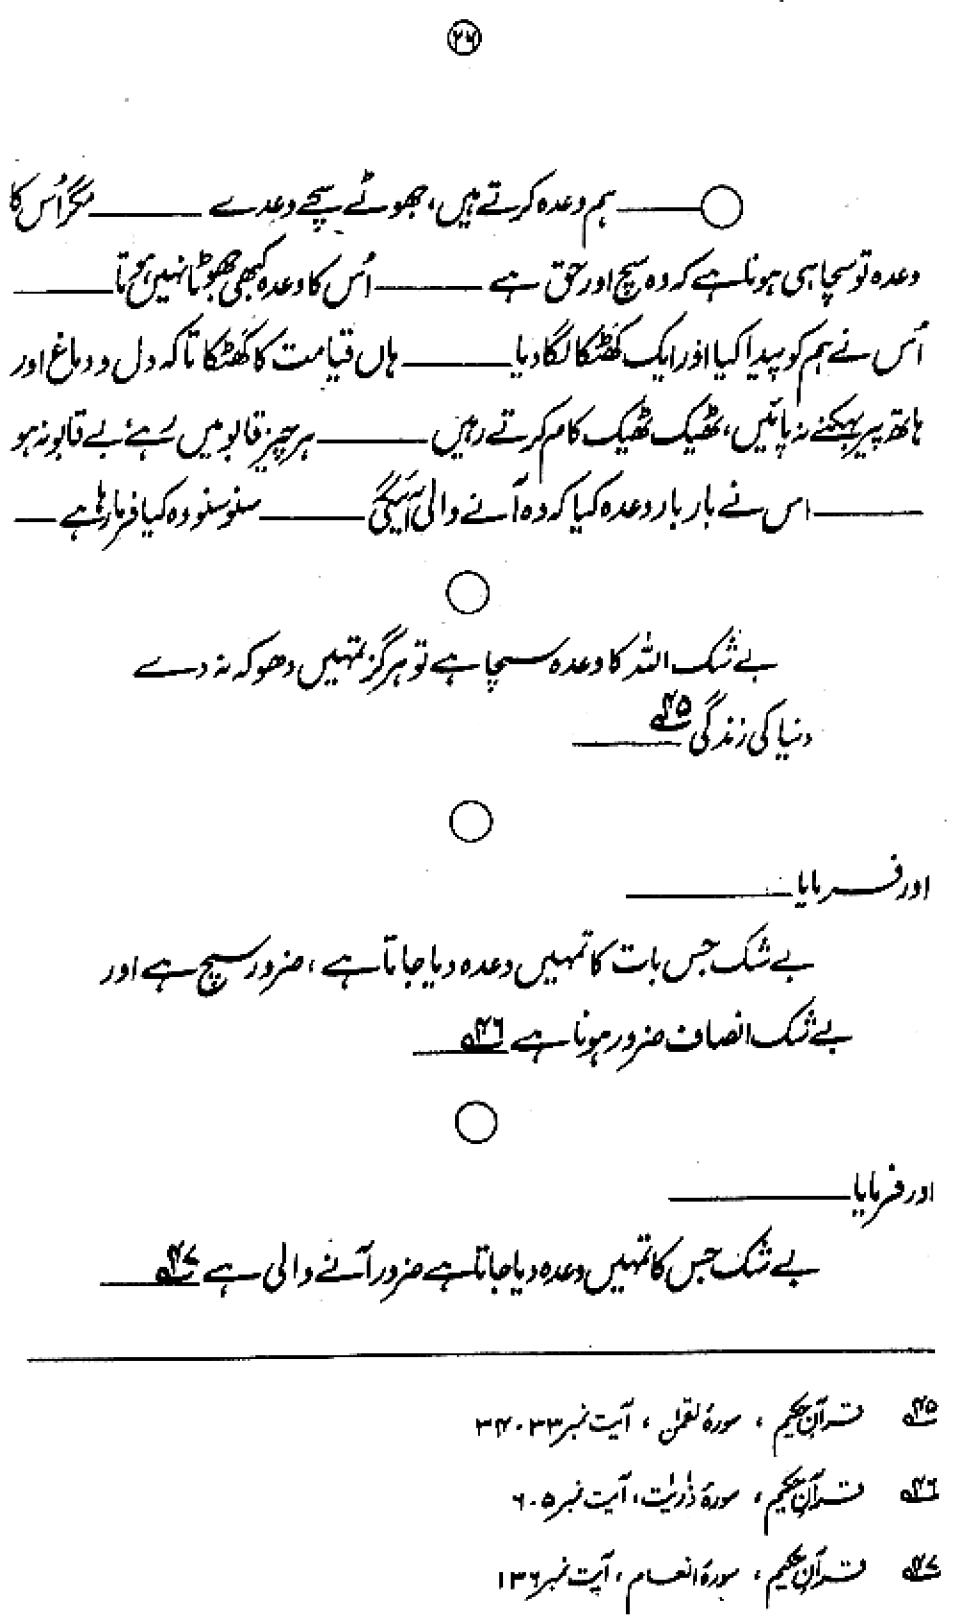 ۲۶
ہم وعدہ کرتے ہیں، جھوٹے سچے وعدے ـــــ مگر اُس کا
وعدہ تو سچا ہی ہونا ہے کہ وہ سچ اور حق ہے ـــــ اُس کا وعدہ کبھی جھوٹا نہیں ہوتا ـــــ
اُس نے ہم کو پیدا کیا اور ایک کھٹکا لگا دیا ـــــ ہاں قیامت کا کھٹکا تاکہ دل و دماغ اور
ہاتھ پیر بہکنے نہ پائیں، ٹھیک ٹھیک کام کرتے رہیں ـــــ ہر چیز قابو میں رہے، بے قابو نہ ہو
ـــــ اس نے بار بار وعدہ کیا کہ وہ آنے والی آئیگی ـــــ سنو سنو وہ کیا فرما رہا ہے ـــــ
بے شک اللہ کا وعدہ سچا ہے تو ہرگز تمہیں دھوکہ نہ دے
دنیا کی زندگی ۴۵ ـــــ
اور فرمایا ـــــ
بے شک جس بات کا تمہیں وعدہ دیا جاتا ہے، ضرور سچ ہے اور
بے شک انصاف ضرور ہونا ہے ۴۶ ـــــ
اور فرمایا ـــــ
بے شک جس کا تمہیں وعدہ دیا جاتا ہے ضرور آنے والی ہے ۴۷ ـــــ
۴۵ قرآن حکیم، سورۂ لقمٰن، آیت نمبر ۳۳-۳۴
۴۶ قرآن حکیم، سورۂ ذٰریٰت، آیت نمبر ۵-۶
۴۷ قرآن حکیم، سورۂ انعام، آیت نمبر ۱۳۶